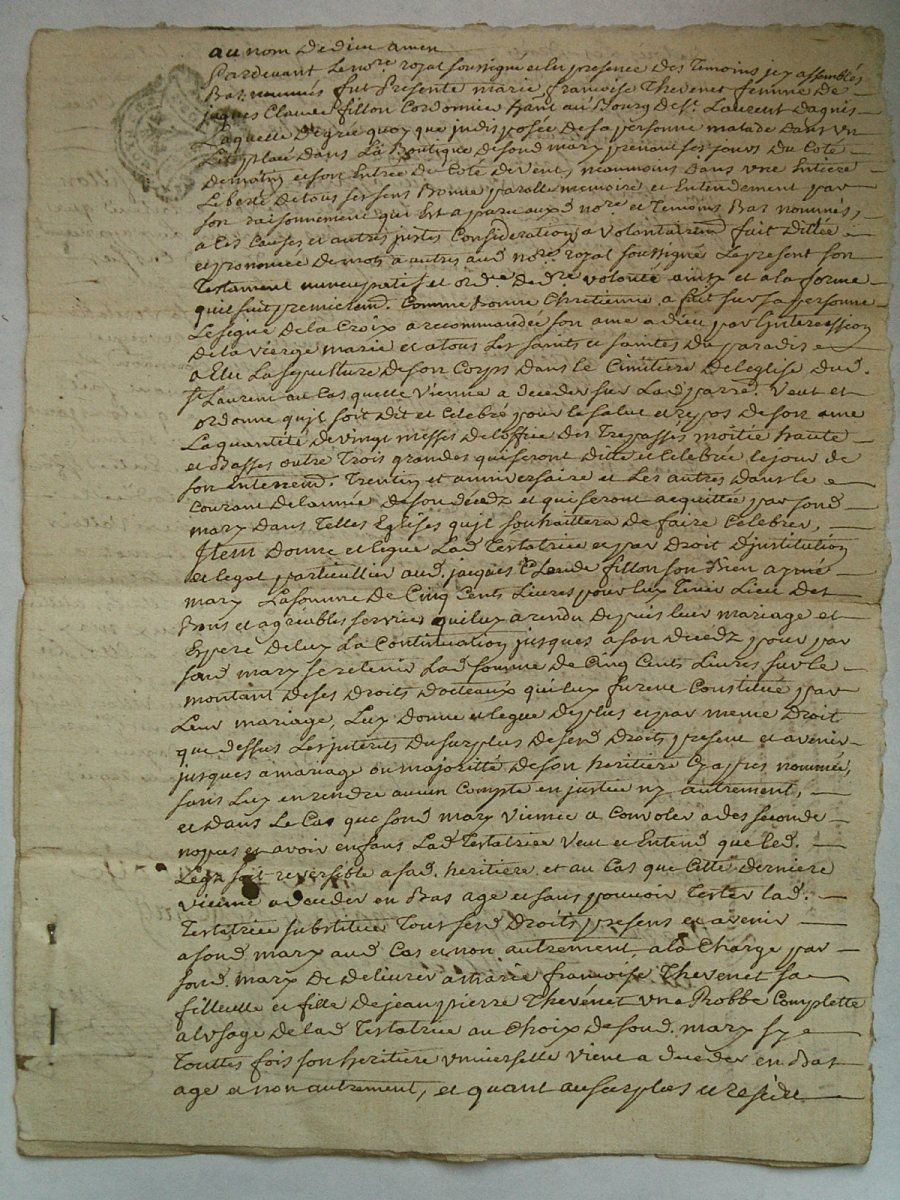 au nom de dieu amen
Pardevant le nore royal soussigné et en presence des Temoins icy assemblés
Bas nommés fut Presente marie françoise Thevenet femme de
jaques Claude fillon Cordonnier hant au Bourg de st. Laurent dagnis
Laquelle de gré quoy que indisposée de sa personne malade dans un
Lit placé dans La Boutique de sond mary prenant ses jours du Coté
de matin et son Entrée du Coté de vent, neanmoins dans une Entiere
Liberté de tous ses sens Bonne parolle memoire et Entendement par
son raisonnement qui Est aparu auxd nore. et Temoins Bas nommés,
a Ces Causes et autres justes Consideration a volontairemt fait dittée
et prononcée de mots a autres aud nore. royal soussigné Le present son
Testament nuncupatif et ordre. de dre. volonté ainsy et a la forme
quil suit premieremt. Comme Bonne Chretienne a fait sur sa personne
Le signe de la Croix a recommandée son ame a dieu par L'intercession
de la vierge marie et a tous Les saints et saintes du paradis
a Elu La sepulture de son Corps dans le Cimitiere de l'eglise dud.
st Laurent au Cas quelle vienne a deceder sur Lad parre. Veut et
ordonne qu'il soit Dit et Celebré pour le salut et repos de son ame
La quantité de vingt messes de l'office des Trepassés moitié haute
et Basses outre Trois grandes qui seront Ditte et Celebrée le jour de
son Enterremt. Trentin et anniversaire et Les autres dans le
Courant de l'année de son decedz et qui seront acquittée par sond
mary dans Telles Eglises qu'il souhaittera de faire Celebrer,
Item Donne et legue Lad Testatrice et par Droit d'institution
et legat particullier aud. jacques Claude fillon son Bien aymé
mary La somme de Cinq Cents Livres pour luy Tenir Lieu des
Bons et agreables services qui luy a rendu depuis leur mariage et
Espere de luy La Continuation jusques a son decedz pour par
sond mary se retenir Lad somme de Cinq Cents Livres sur le
montant de ses Droits Doteaux qui luy furent Constitué par
Leur mariage, Luy Donne et legue de plus et par meme Droit
que dessus Les interets du surplus de sesd Droits present et avenir
jusques a mariage ou majoritté de son heritiere Cy apres nommée,
sans Luy en rendre aucun Compte en justice ny autrement,
et dans Le Cas que sond mary vienne a Convoler a des seconde
nopces et avoir enfans Lad Testatrice Veut et Entend que led.
Legat soit reversible a sad. heritiere et au Cas que Cette derniere
vienne a deceder en Bas age et sans pouvoir Tester lad.
Testatrice substitue Tous sesd Droits presens et avenir
a sond mary aud Cas et non autrement, a la Charge par
sond. mary de delivrer a marie françoise Thevenet sa
filleulle et fille de jean pierre Thevenet une Robbe Complette
a l'usage de lad Testatrice au Choix de sond. mary sy
Touttes fois son heritiere universelle viene a deceder en Bas
age et non autrement, et quant au surplus et residu